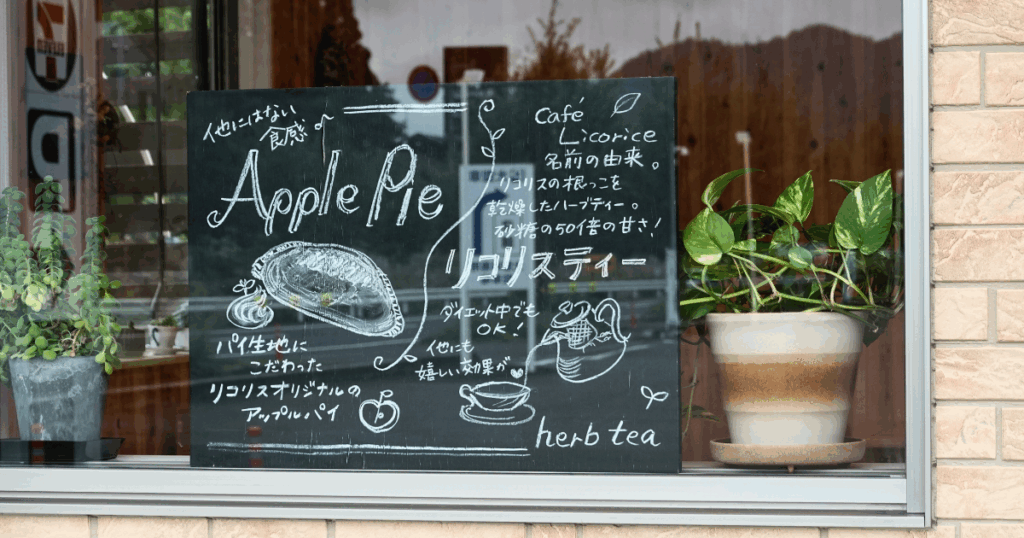 他にはない
食感
Apple Pie
パイ生地に
こだわった
リコリスオリジナルの
アップルパイ
Café
Licorice
名前の由来。
リコリスの根っこを
乾燥したハーブティー。
砂糖の50倍の甘さ!
リコリスティー
ダイエット中でも
OK!
他にも
嬉しい効果が
herb tea